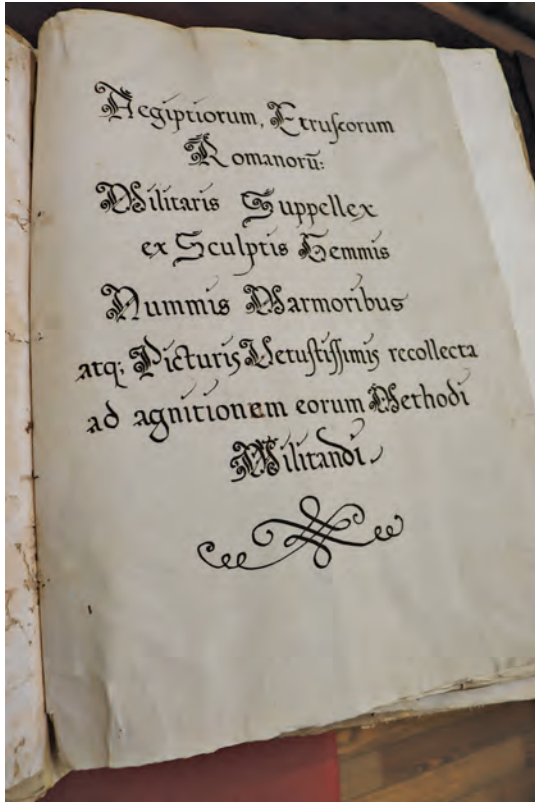 Aegiptiorum, Etruſcorum
Romanorū:
Militaris Suppellex
ex Sculptis Gemmis
Nummis Marmoribus
atq; Picturis Vetuſtiſſimis recollecta
ad agnitionem eorum Methodi
Militandi